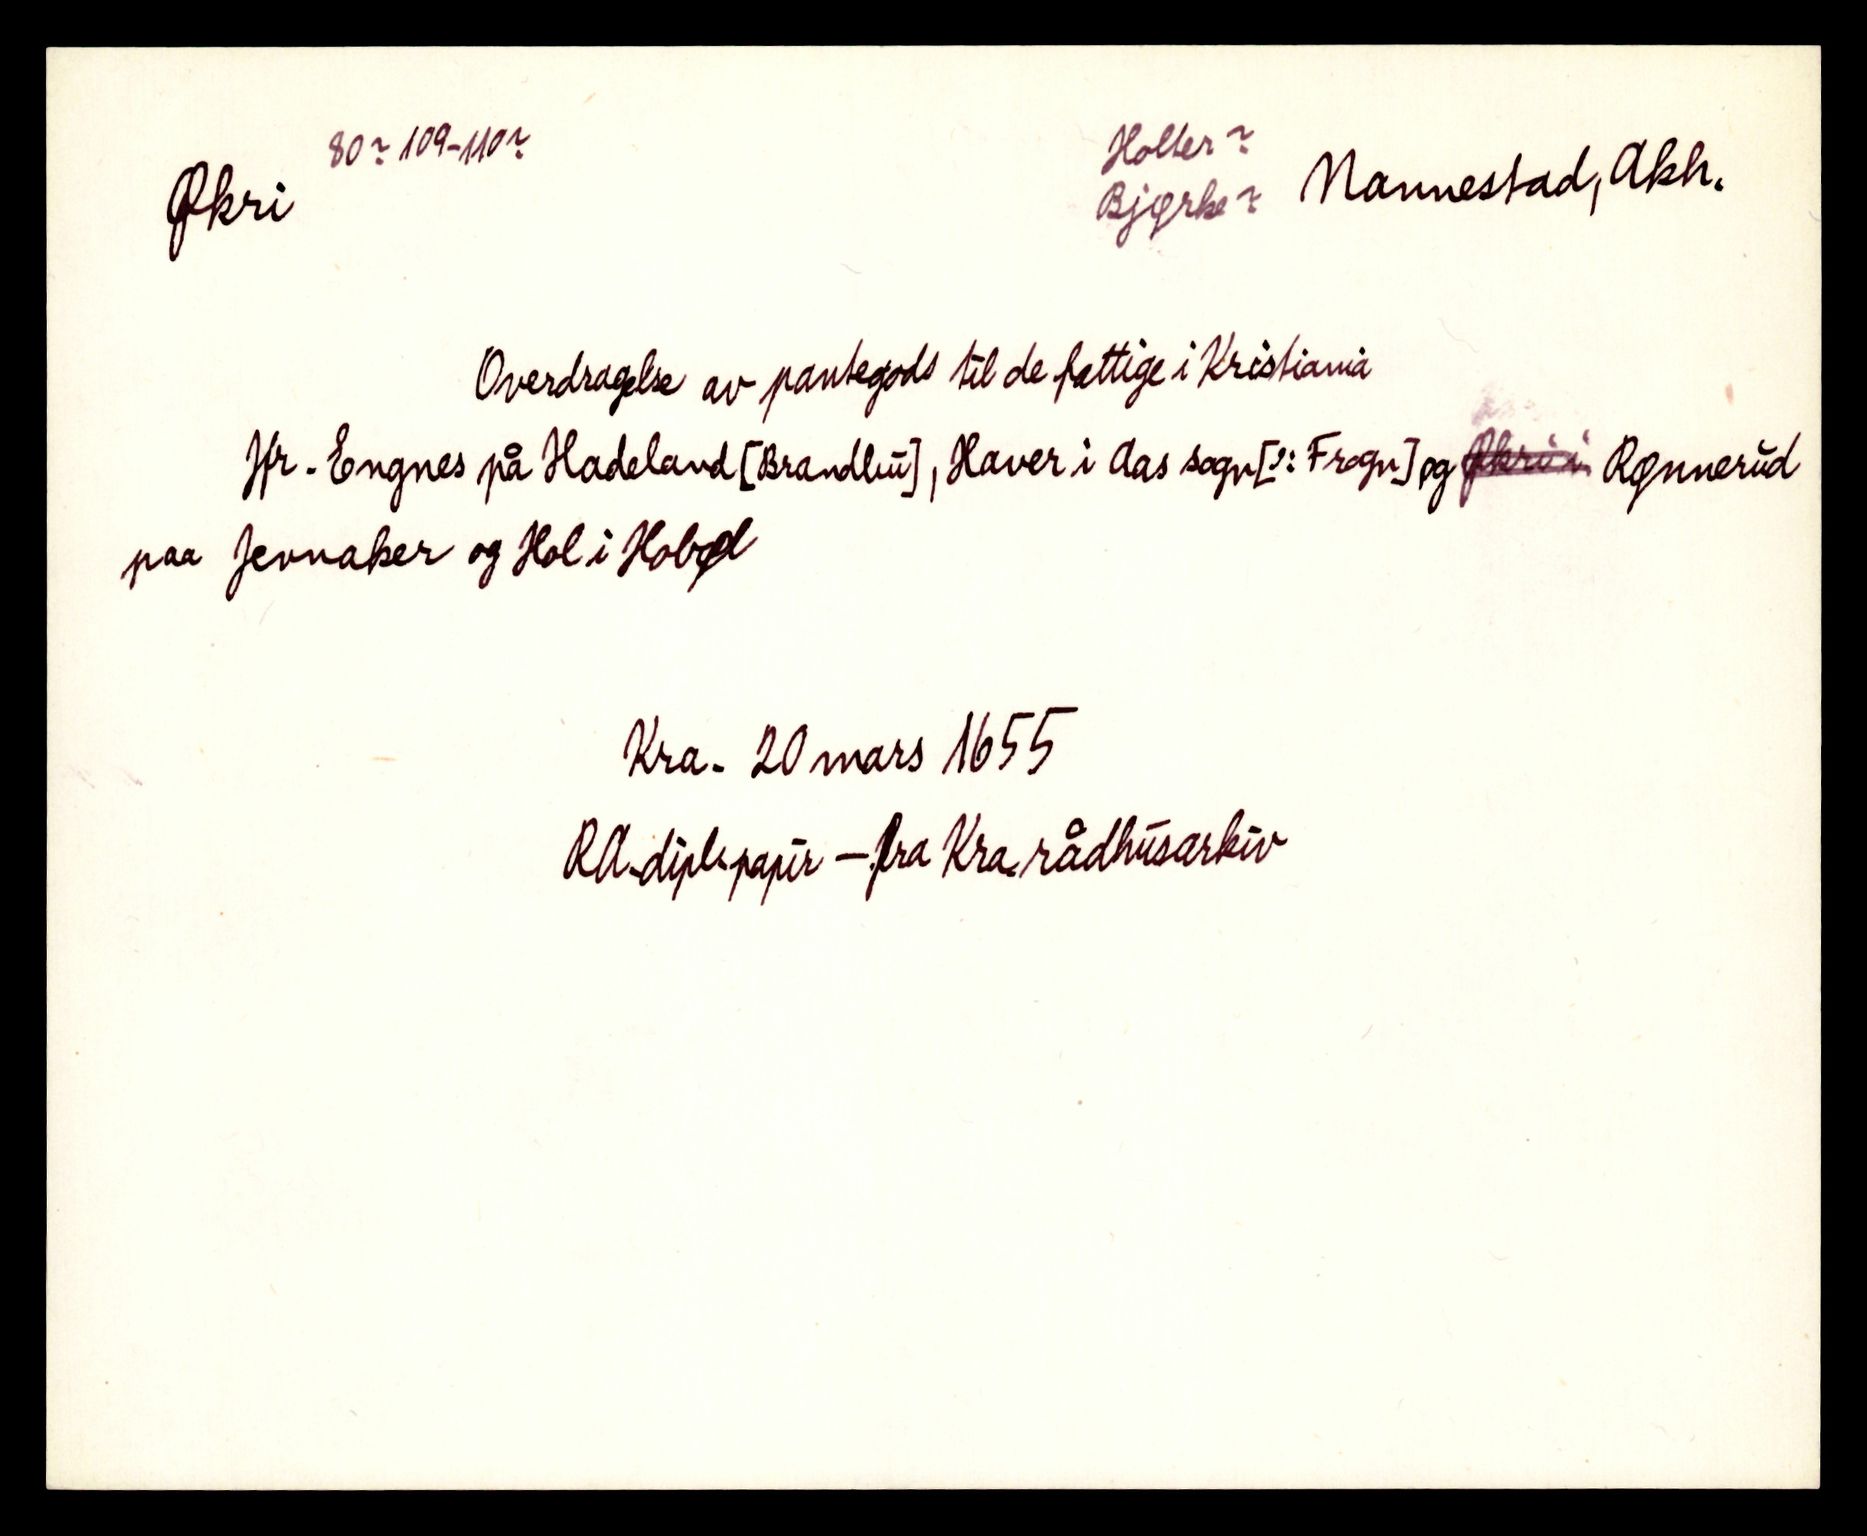 Økri 80? 109-110?
Holter?
Bjørke?
Nannestad, Akh.
Overdragelse av pantegods til de fattige i Kristiania
Jfr. Engnes på Hadeland [Brandbu], Haver i Aas sogn [ɔ: Frogn] og Økri i Rønnerud
paa Jevnaker og Hol i Hobøl
Kra. 20 mars 1655
RA. dipl. papir – fra Kra. rådhusarkiv